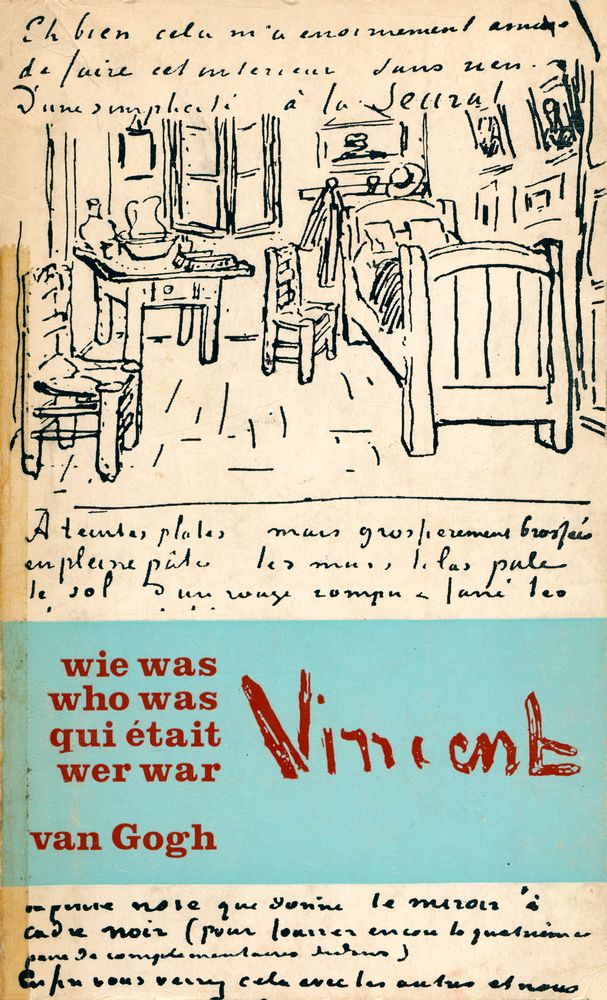 Eh bien cela m'a enormement amusé
de faire cet interieur sans rien.
D'une simplicité à la Seurat
A teintes plates mais grossierement brossées
en pleine pâte les murs lilas pale
le sol d'un rouge rompu & fané les
wie was
who was
qui était
wer war
van Gogh
Vincent
note que donne le miroir à
cadre noir (pour fourrer encore la quatrieme
paire de complementaires dedans)
Enfin vous verrez cela avec les autres et nous